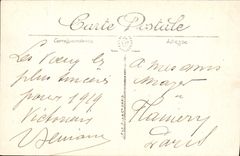 Carte Postale
Correspondance
Adresse
Les Vœux les
plus sincères
pour 1919
Victorieux
A mes amis
à
Paris